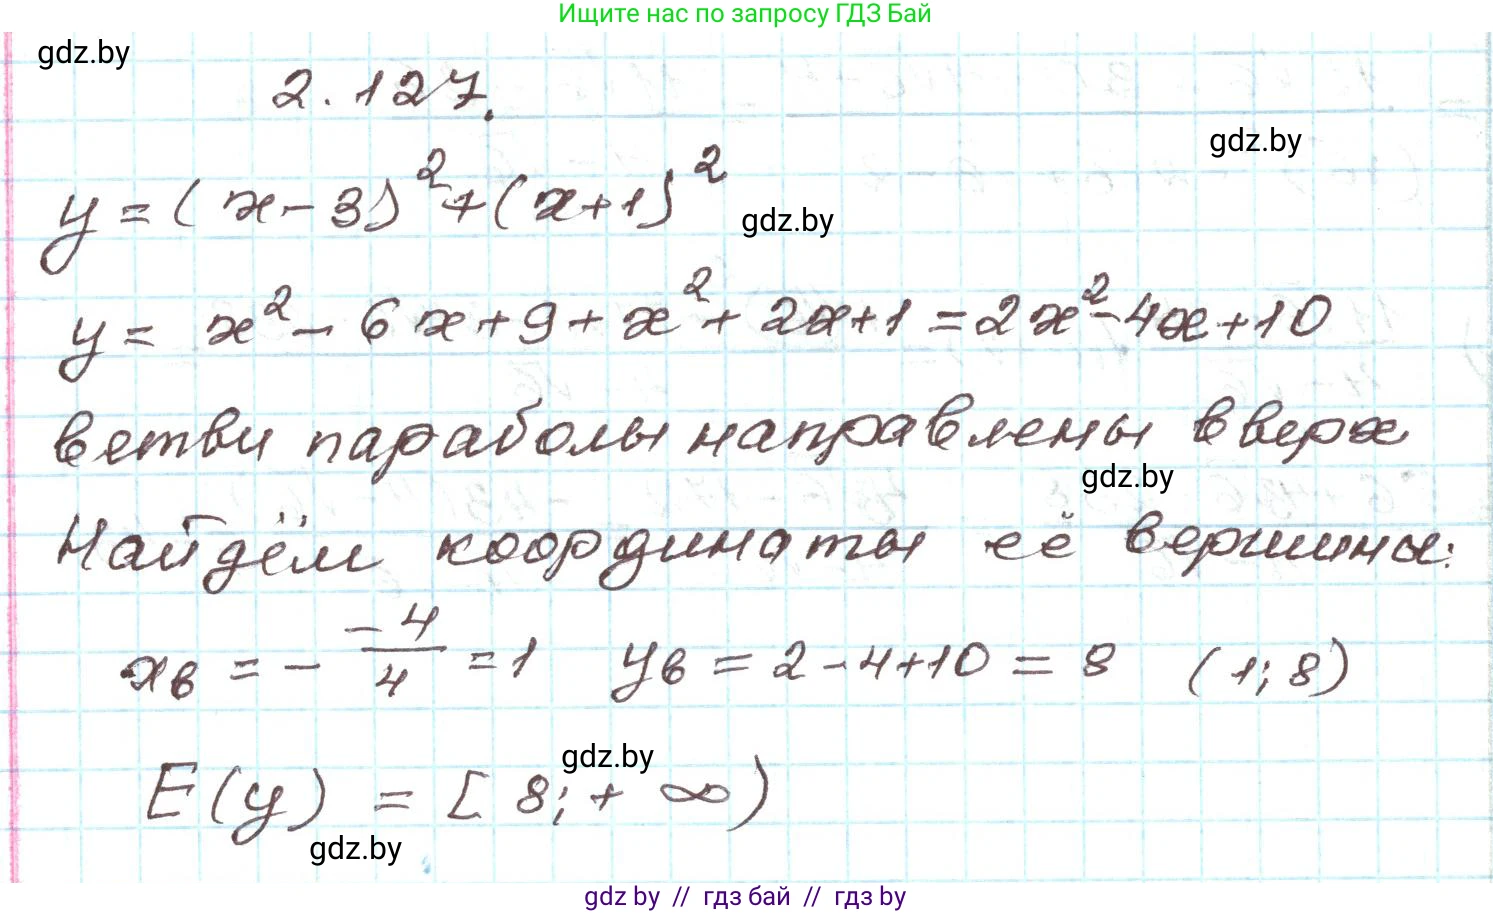 Ищите нас по запросу ГДЗ Бай
gdz.by
2.127.
gdz.by
y = (x - 3)² + (x + 1)²
gdz.by
y = x² - 6x + 9 + x² + 2x + 1 = 2x² - 4x + 10
ветви параболы направлены вверх
gdz.by
Найдём координаты её вершины:
xв = - -4/4 = 1 yв = 2 - 4 + 10 = 8 (1; 8)
gdz.by
E(y) = [8; + ∞)
gdz.by
gdz.by // гдз бай // гдз by